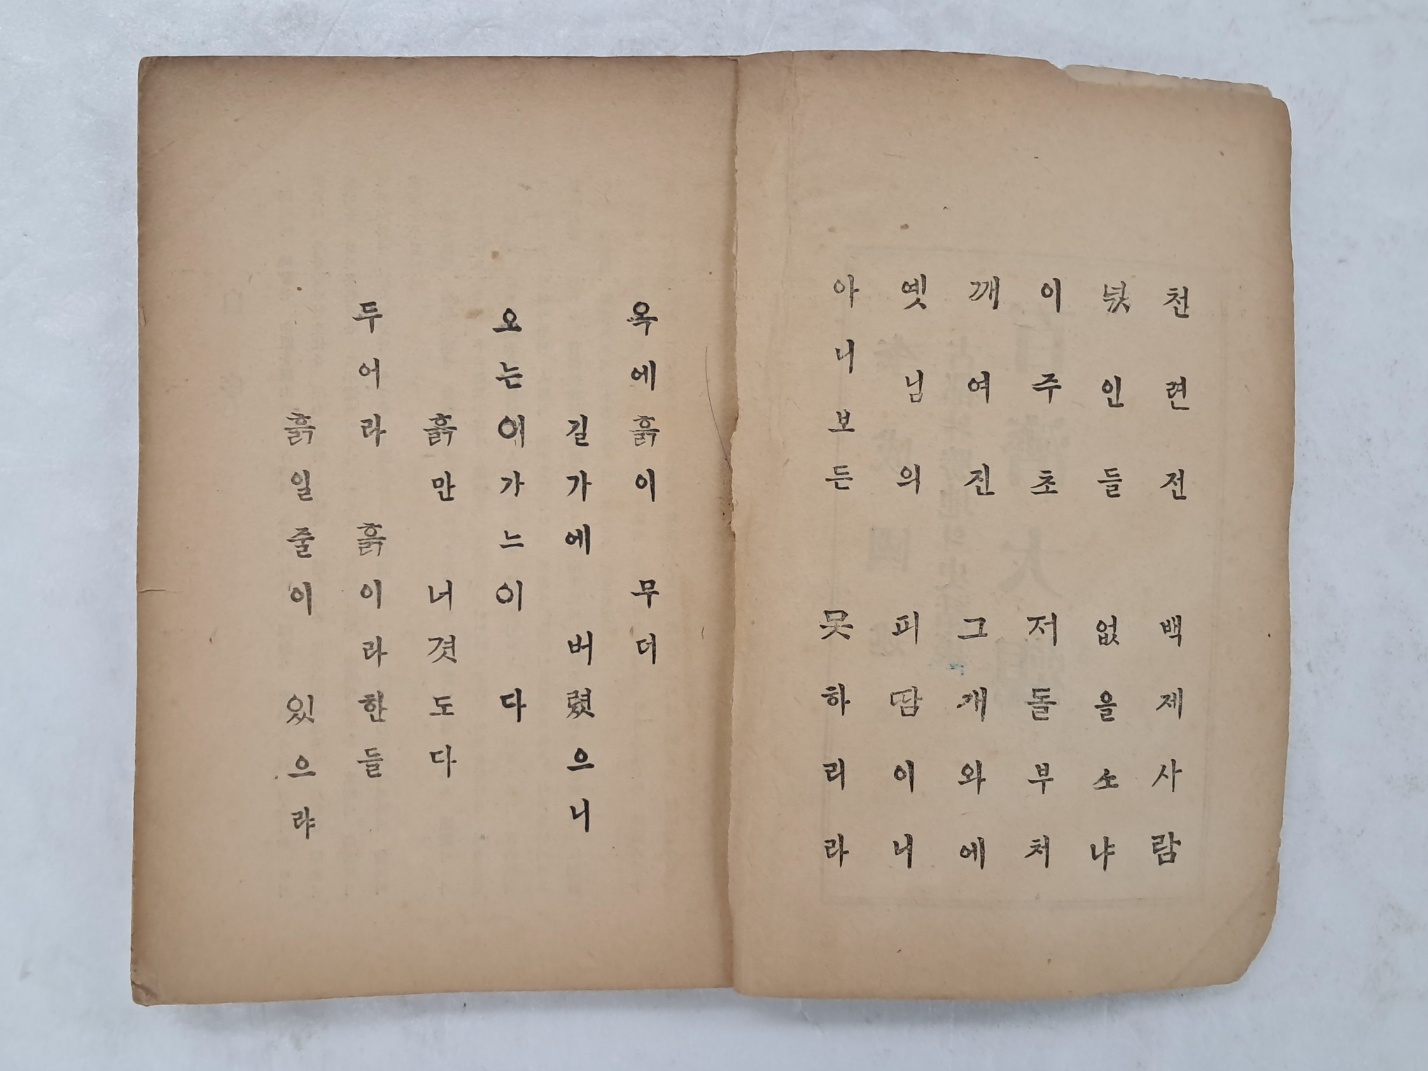 천련전 백제사람
넋인들 없을소냐
이주초 저돌부처
깨여진 그개와에
옛님의 피땀이니
아니보든 못하리라
옥에흙이 무더
길가에 버렸으니
오는이가느이 다
흙만 너겻도다
두어라 흙이라한들
흙일줄이 있으랴